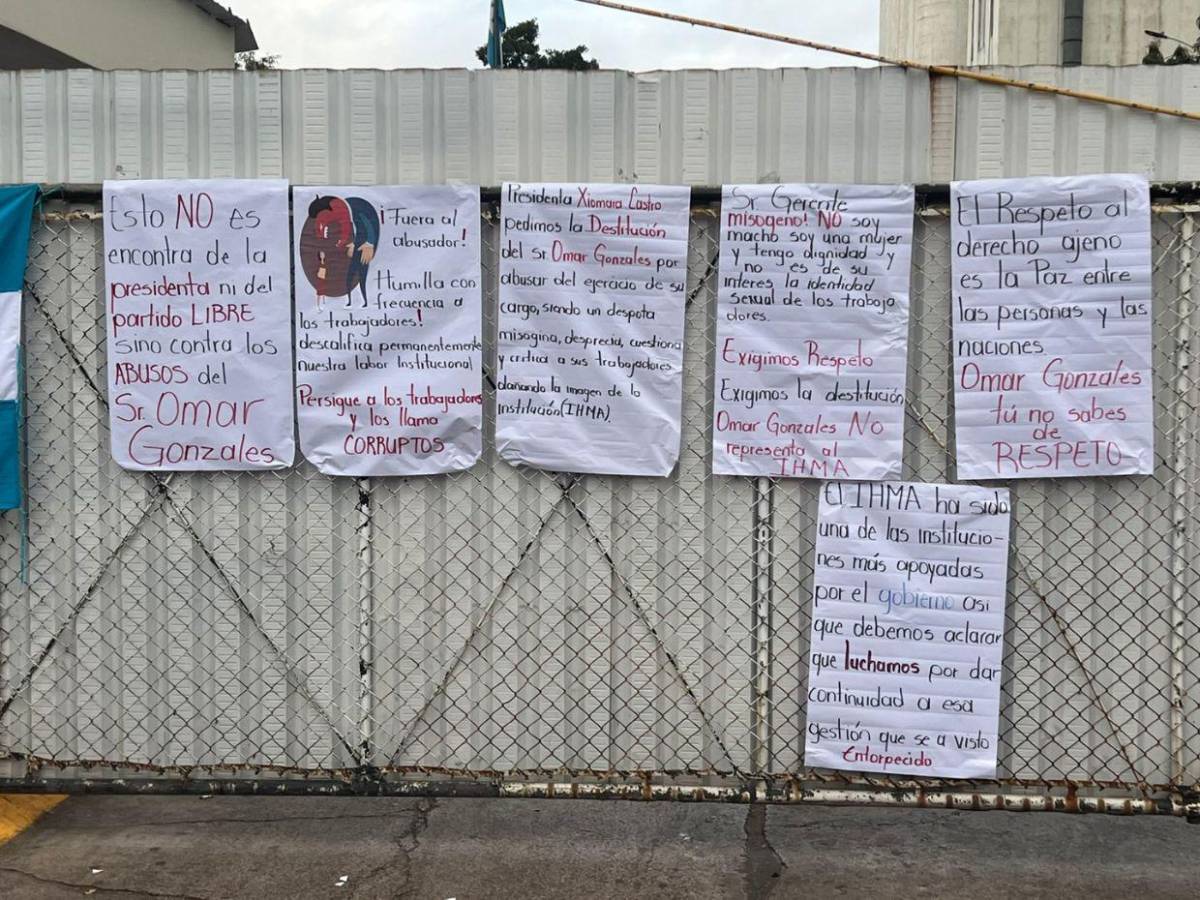 Esto NO es
encontra de la
presidenta ni del
partido LIBRE
sino contra los
ABUSOS del
Sr. Omar
Gonzales
¡Fuera al
abusador!
Humilla con
frecuencia a
los trabajadores!
descalifica permanentemente
nuestra labor Institucional
Persigue a los trabajadores
y los llama
CORRUPTOS
Presidenta Xiomara Castro
pedimos la Destitución
del Sr. Omar Gonzales por
abusar del ejercicio de su
cargo, siendo un despota
misogina, desprecia, cuestiona
y critica a sus trabajadores
dañando la imagen de la
institución (IHMA).
Sr. Gerente
misogeno! NO soy
macho soy una mujer
y tengo dignidad y
no es de su
interes la identidad
sexual de los trabaja
dores.
Exigimos Respeto
Exigimos la destitución
Omar Gonzales No
representa al
IHMA
El Respeto al
derecho ajeno
es la Paz entre
las personas y las
naciones.
Omar Gonzales
tú no sabes
de
RESPETO
El IHMA ha sido
una de las institucio-
nes más apoyadas
por el gobierno asi
que debemos aclarar
que luchamos por dar
continuidad a esa
gestión que se a visto
Entorpecido